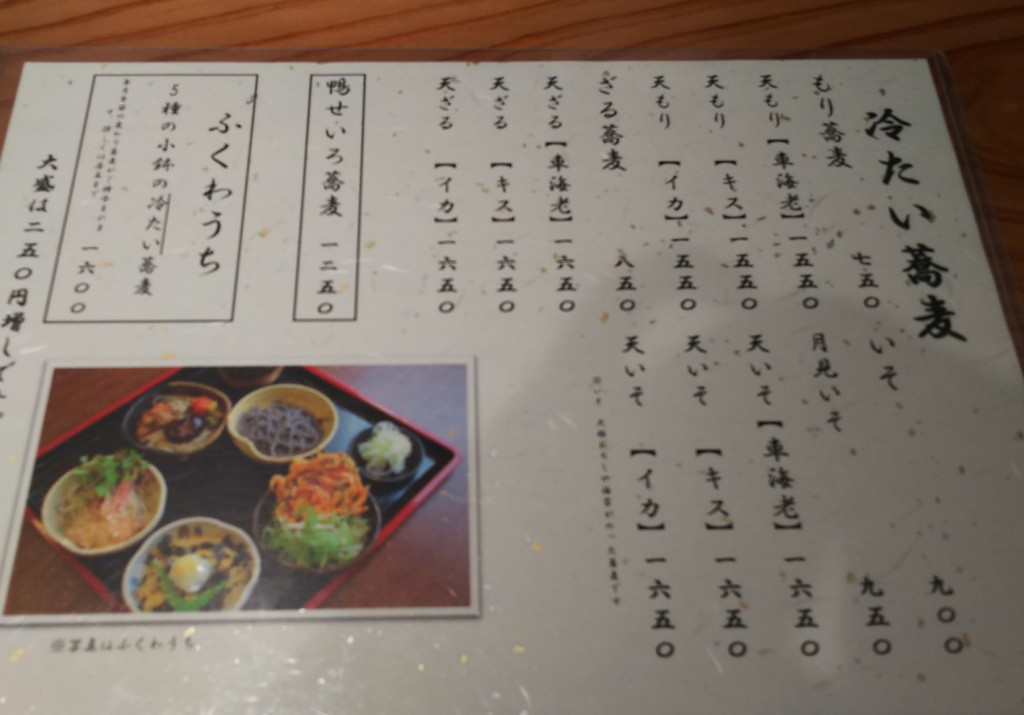 冷たい蕎麦
もり蕎麦 七五〇
天もり【車海老】一五五〇
天もり【キス】一五五〇
天もり【イカ】一五五〇
ざる蕎麦 八五〇
天ざる【車海老】一六五〇
天ざる【キス】一六五〇
天ざる【イカ】一六五〇
いそ 九〇〇
月見いそ 九五〇
天いそ【車海老】一六五〇
天いそ【キス】一六五〇
天いそ【イカ】一六五〇
鴨せいろ蕎麦 一二五〇
ふくわうち
5種の小鉢の冷たい蕎麦
一六〇〇
大盛は二五〇円増し
※写真はふくわうち